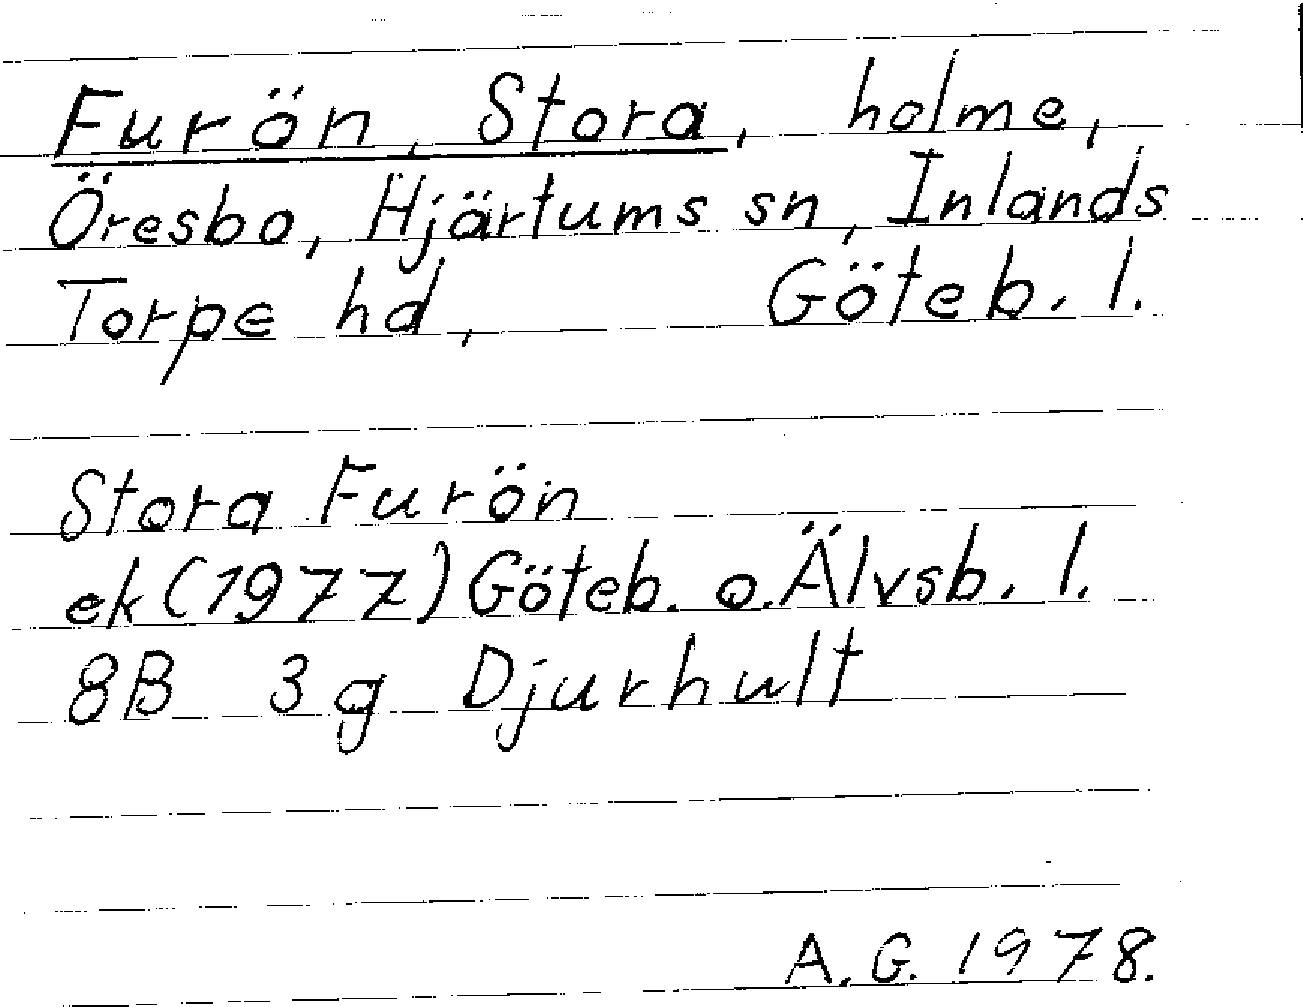 Furön, Stora, holme,
Öresbo, Hjärtums sn, Inlands
Torpe hd, Göteb. l.
Stora Furön
ek (1977) Göteb. o. Älvsb. l.
8B 3g Djurhult
A. G. 1978.